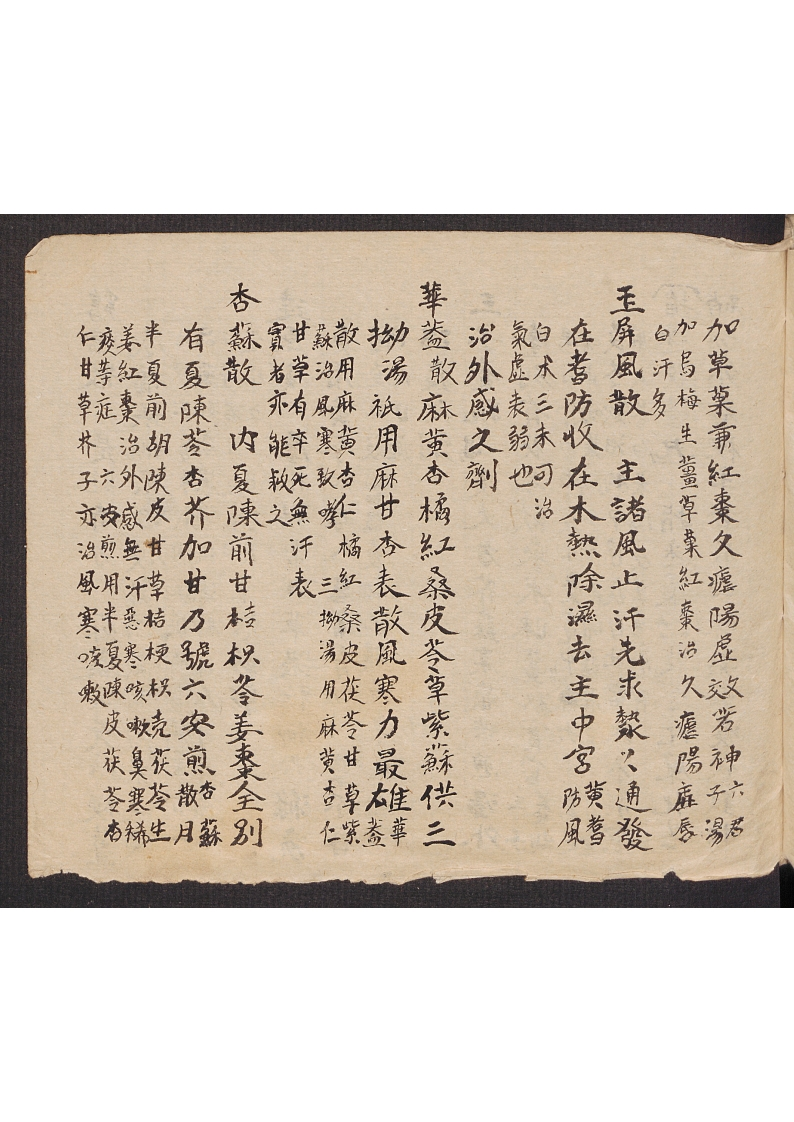 加草菓兼紅棗久瘧陽虛效若神六君子湯
加烏梅生薑草菓紅棗治久瘧陽虛唇
白汗多
玉屏風散 主諸風止汗先求發丷通發
在耆防收在木熱除濕去主中宮黃耆防風
白术三未可治
氣虛表弱也
治外感之劑
華蓋散麻黃杏橘紅桑皮苓草紫蘇供三
拗湯祇用麻甘杏表散風寒力最雄華蓋
散用麻黃杏仁橘紅桑皮茯苓甘草紫
蘇治風寒致哮 三拗湯用麻黃杏仁
甘草有卒死無汗表
實者亦能救之
杏蘇散 內夏陳前甘桔枳苓姜棗全別
有夏陳苓杏芥加甘乃號六安煎杏蘇散用
半夏前胡陳皮甘草桔梗枳壳茯苓生
姜紅棗治外感無汗惡寒咳嗽鼻寒稀
痰等症 六安煎用半夏陳皮茯苓杏
仁甘草芥子亦治風寒咳嗽